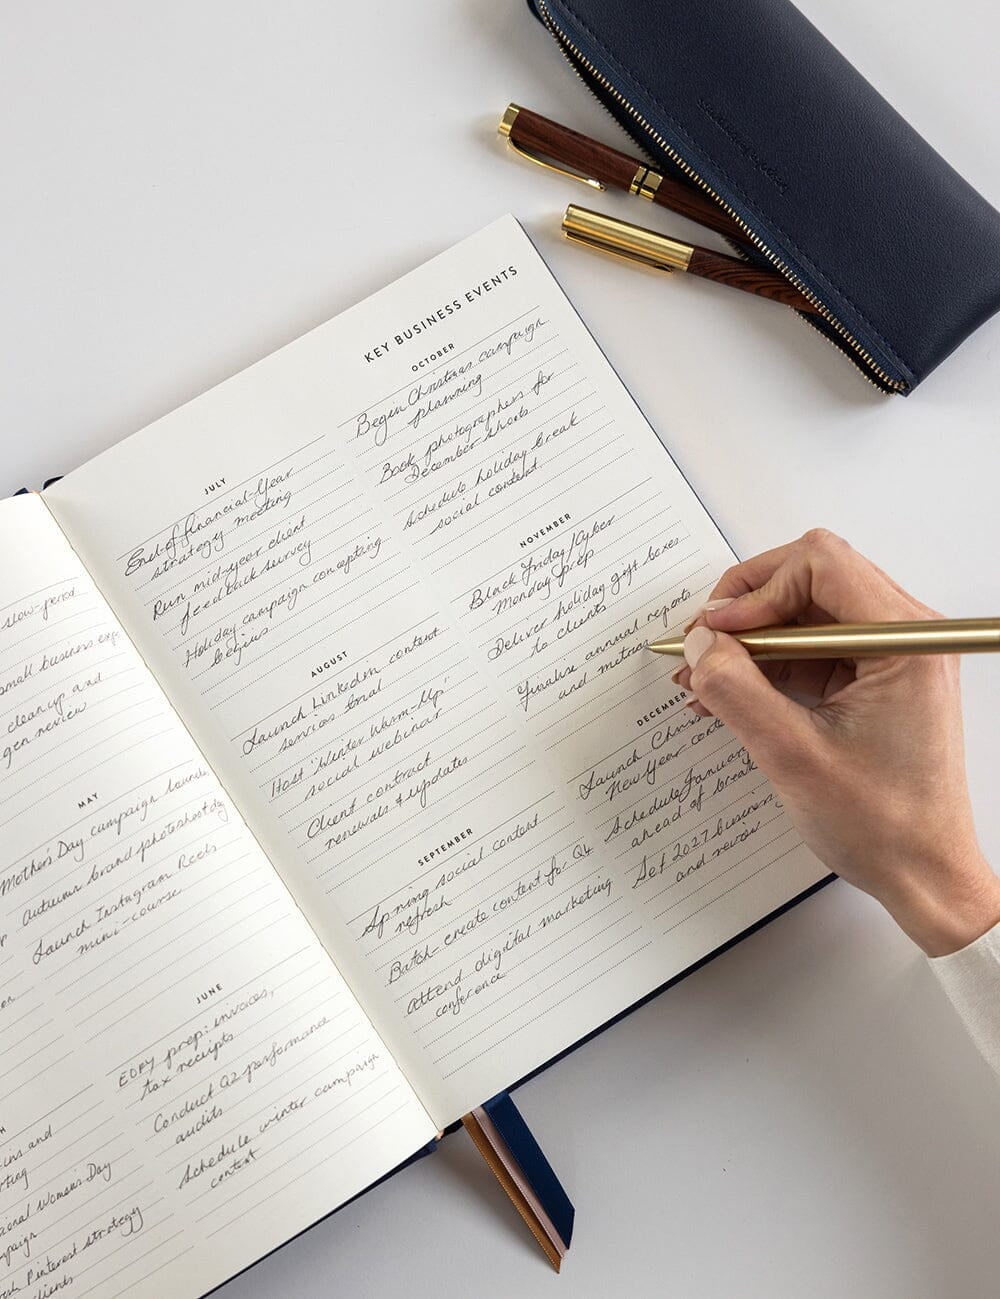 slow-period
small business
cleanup and
gen review
MAY
Mother's Day campaign launch
Autumn brand photoshoot day
Launch Instagram Reels
mini-course
JUNE
EOFY prep: invoices,
tax receipts
Conduct Q2 performance
audits
Schedule winter campaign
content
H
ins and
rting
ional Women's Day
mpaign
Pinterest strategy
clients
KEY BUSINESS EVENTS
JULY
End-of-financial-year
strategy meeting
Run mid-year client
feedback survey
Holiday campaign concepting
begins
AUGUST
Launch Linkedin content
services trial
Host 'Winter Warm-Up'
social webinar
Client contract
renewals & updates
SEPTEMBER
Spring social content
refresh
Batch-create content for Q4
Attend digital marketing
conference
OCTOBER
Begin Christmas campaign
planning
Book photographers for
December shoots
Schedule holiday break
social content.
NOVEMBER
Black Friday/Cyber
Monday prep
Deliver holiday gift boxes
to clients
Finalise annual reports
and metrics
DECEMBER
Launch Chris
New Year conte
Schedule January
ahead of break
Set 2027 business
and review